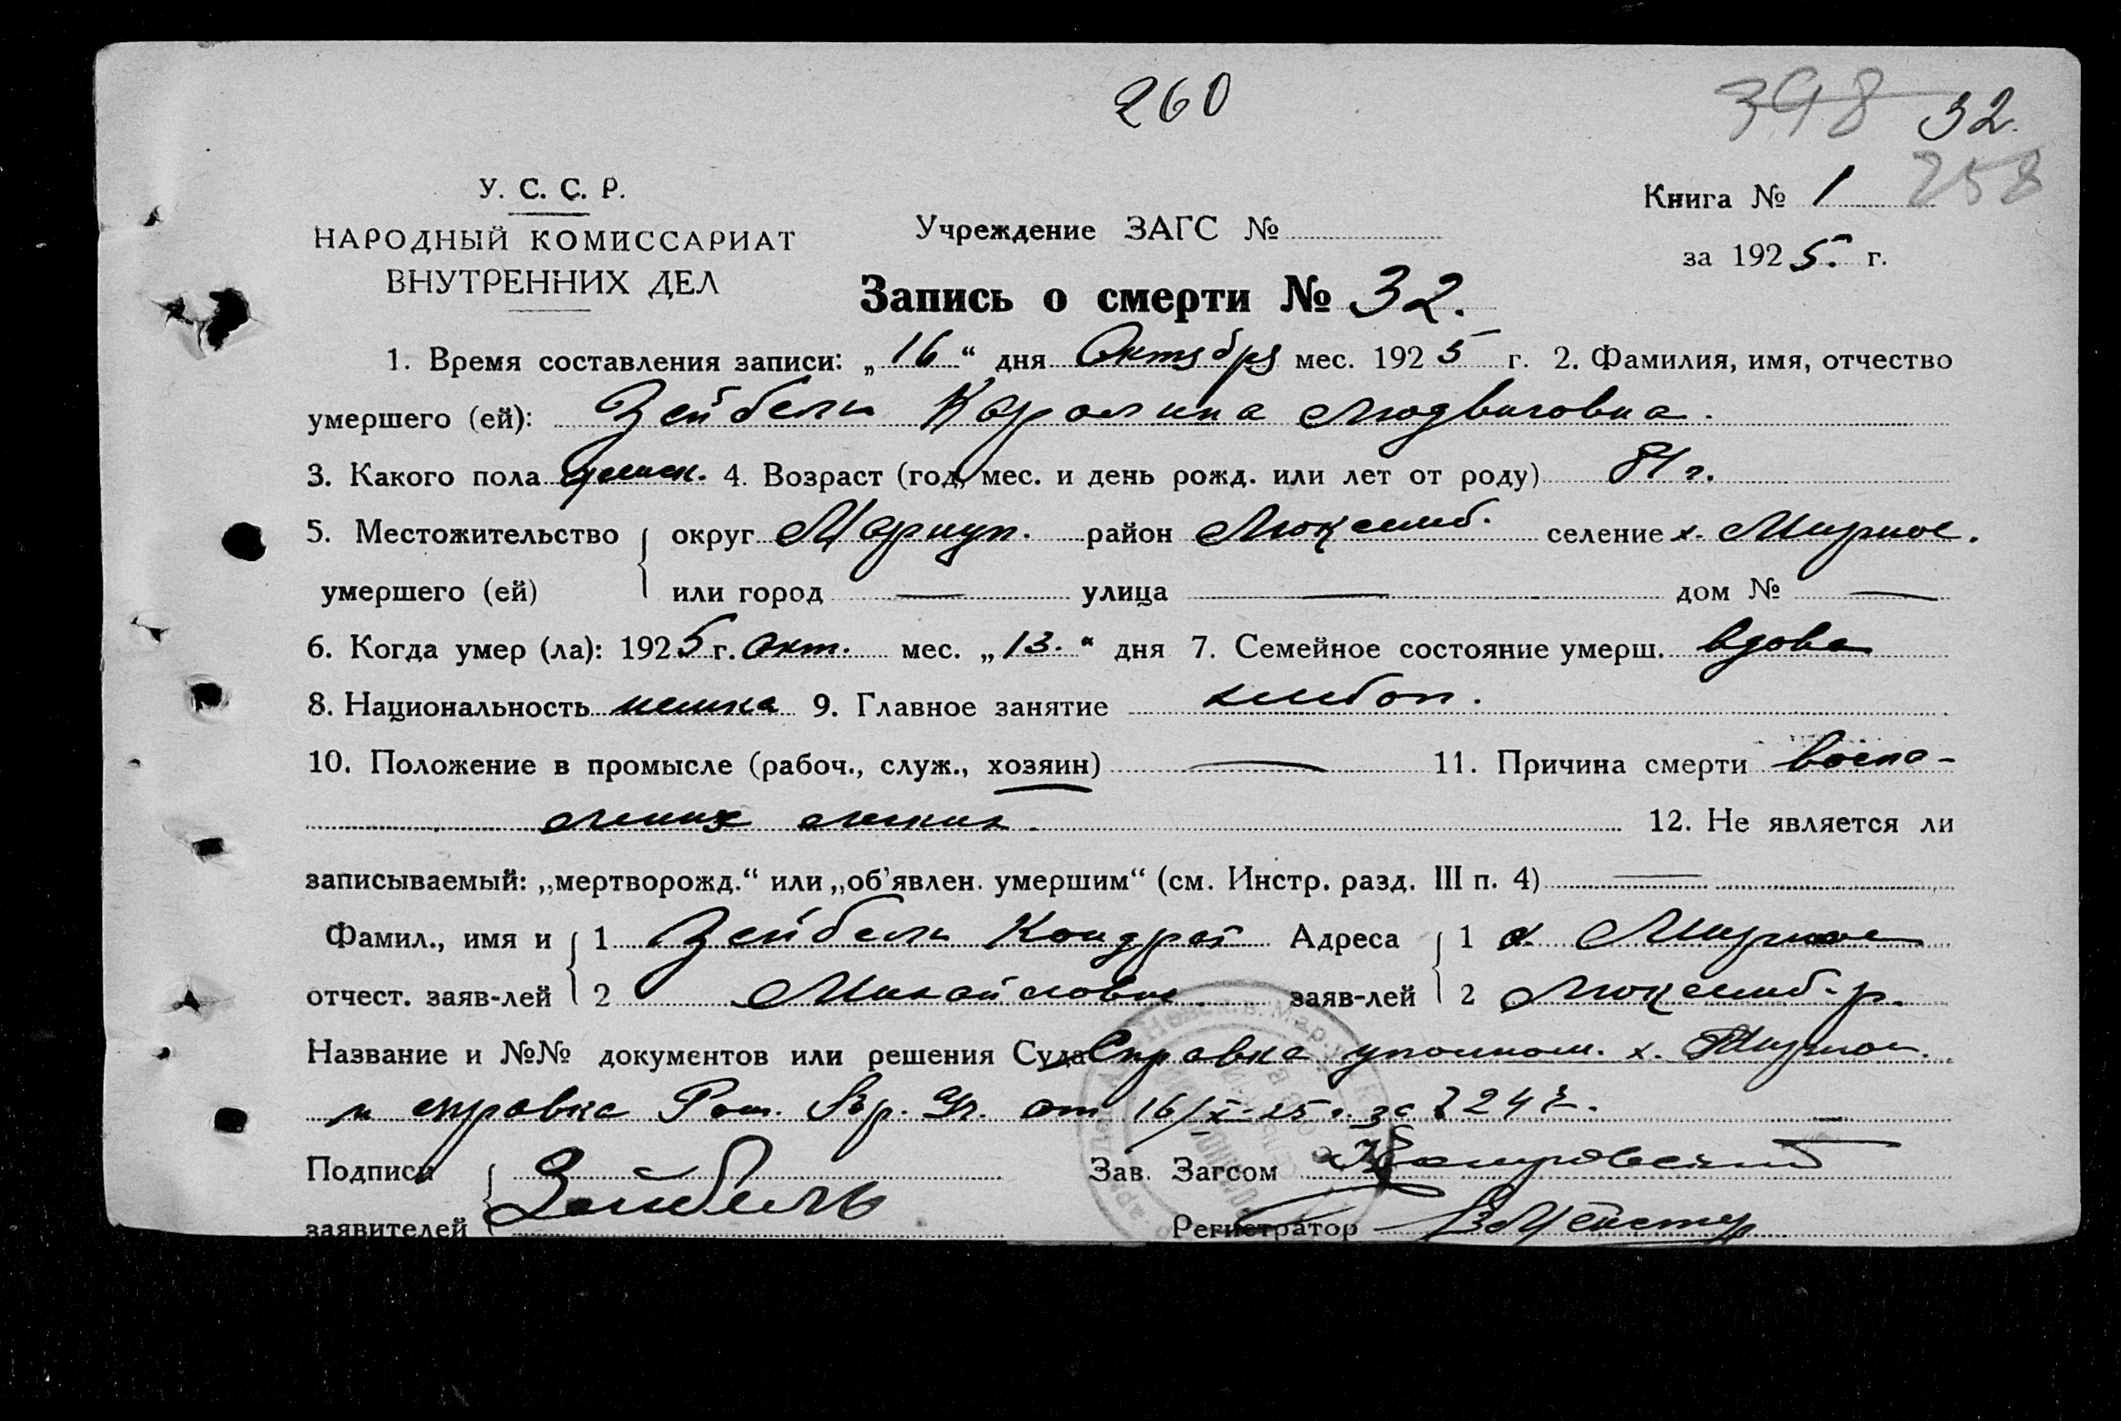 260
398 32.
258
У. С. С. Р.
НАРОДНЫЙ КОМИССАРИАТ
ВНУТРЕННИХ ДЕЛ
Учреждение ЗАГС №
Книга № 1
за 1925. г.
Запись о смерти № 32.
1. Время составления записи: „16“ дня Октября мес. 1925 г. 2. Фамилия, имя, отчество
умершего (ей): Зейбель Каролина Людвиговна.
3. Какого пола женск. 4. Возраст (год, мес. и день рожд. или лет от роду) 81 г.
5. Местожительство округ Мариуп. район Люксемб. селение х. Мирное.
умершего (ей) или город — улица — дом № —
6. Когда умер (ла): 1925 г. Окт. мес. „13.“ дня 7. Семейное состояние умерш. вдова
8. Национальность немка 9. Главное занятие хлебоп.
10. Положение в промысле (рабоч., служ., хозяин) — 11. Причина смерти воспа-
ление легких.
12. Не является ли
записываемый: „мертворожд.“ или „об’явлен. умершим“ (см. Инстр. разд. III п. 4) —
Фамил., имя и 1 Зейбель Кондрат Адреса 1 х. Мирное
отчест. заяв-лей 2 Михайлович. заяв-лей 2 Люксемб. р.
Название и №№ документов или решения Суда Справка уполном. х. Мирное.
и справка Вр. Уч. от 16/X-25 г. за № 224
Подписи Зейбель Зав. Загсом
заявителей Регистратор